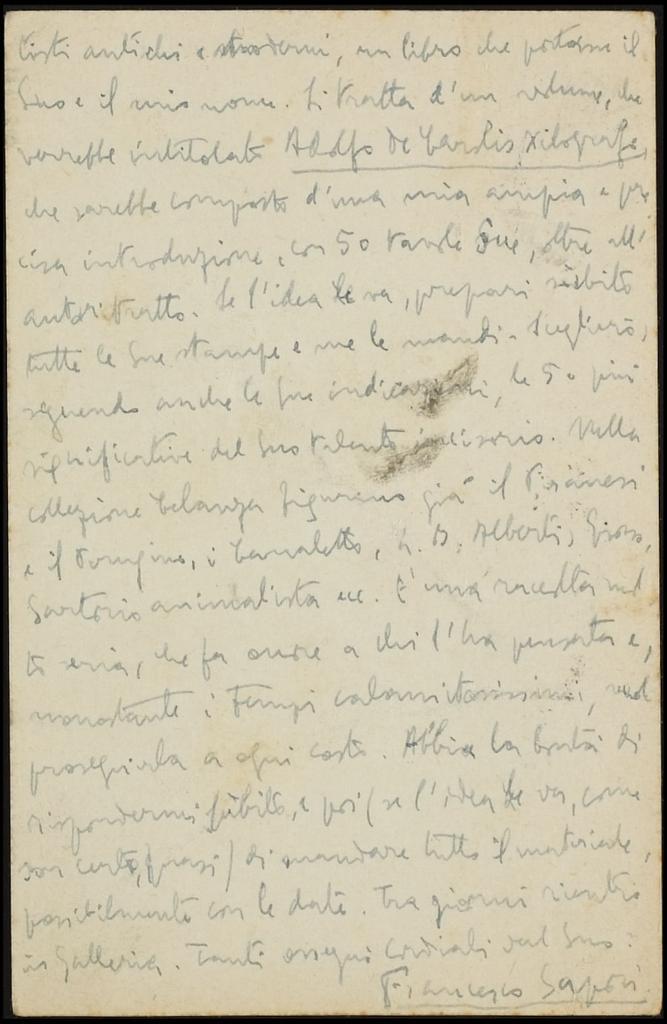 tisti antichi e moderni, un libro che portasse il
Suo e il mio nome. Si tratta d'un volume, che
verrebbe intitolato Adolfo De Carolis xilografo,
che sarebbe composto d'una mia ampia e pre
cisa introduzione, con 50 tavole Sue, oltre all'
autoritratto. Se l'idea Le va, prepari subito
tutte le Sue stampe e me le mandi. Sceglierò,
seguendo anche le Sue indicazioni, le 50 più
significative del Suo talento incisorio. Nella
collezione Celanza figurano già il Piranesi
e il Parmigino, i Canaletto, L. B. Alberti,
Sartorio animalista ecc. È una raccolta mol
to seria, che fa onore a chi l'ha pensata e,
nonostante i tempi calamitosissimi, vuole
proseguirla a ogni costo. Abbia la bontà di
rispondermi sùbito, e poi (se l'idea Le va, come
son certo, quasi) di mandare tutto il materiale,
possibilmente con le date. Tra giorni rientro
in Galleria. Tanti ossequi cordiali dal Suo:
Francesco Sapori